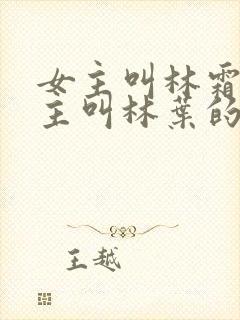 女主叫林霜
主叫林葉的
王越